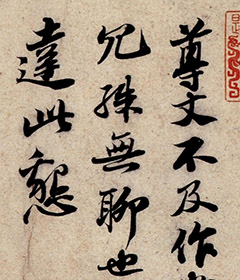 尊丈不及作
冗殊無聊也
達此懇